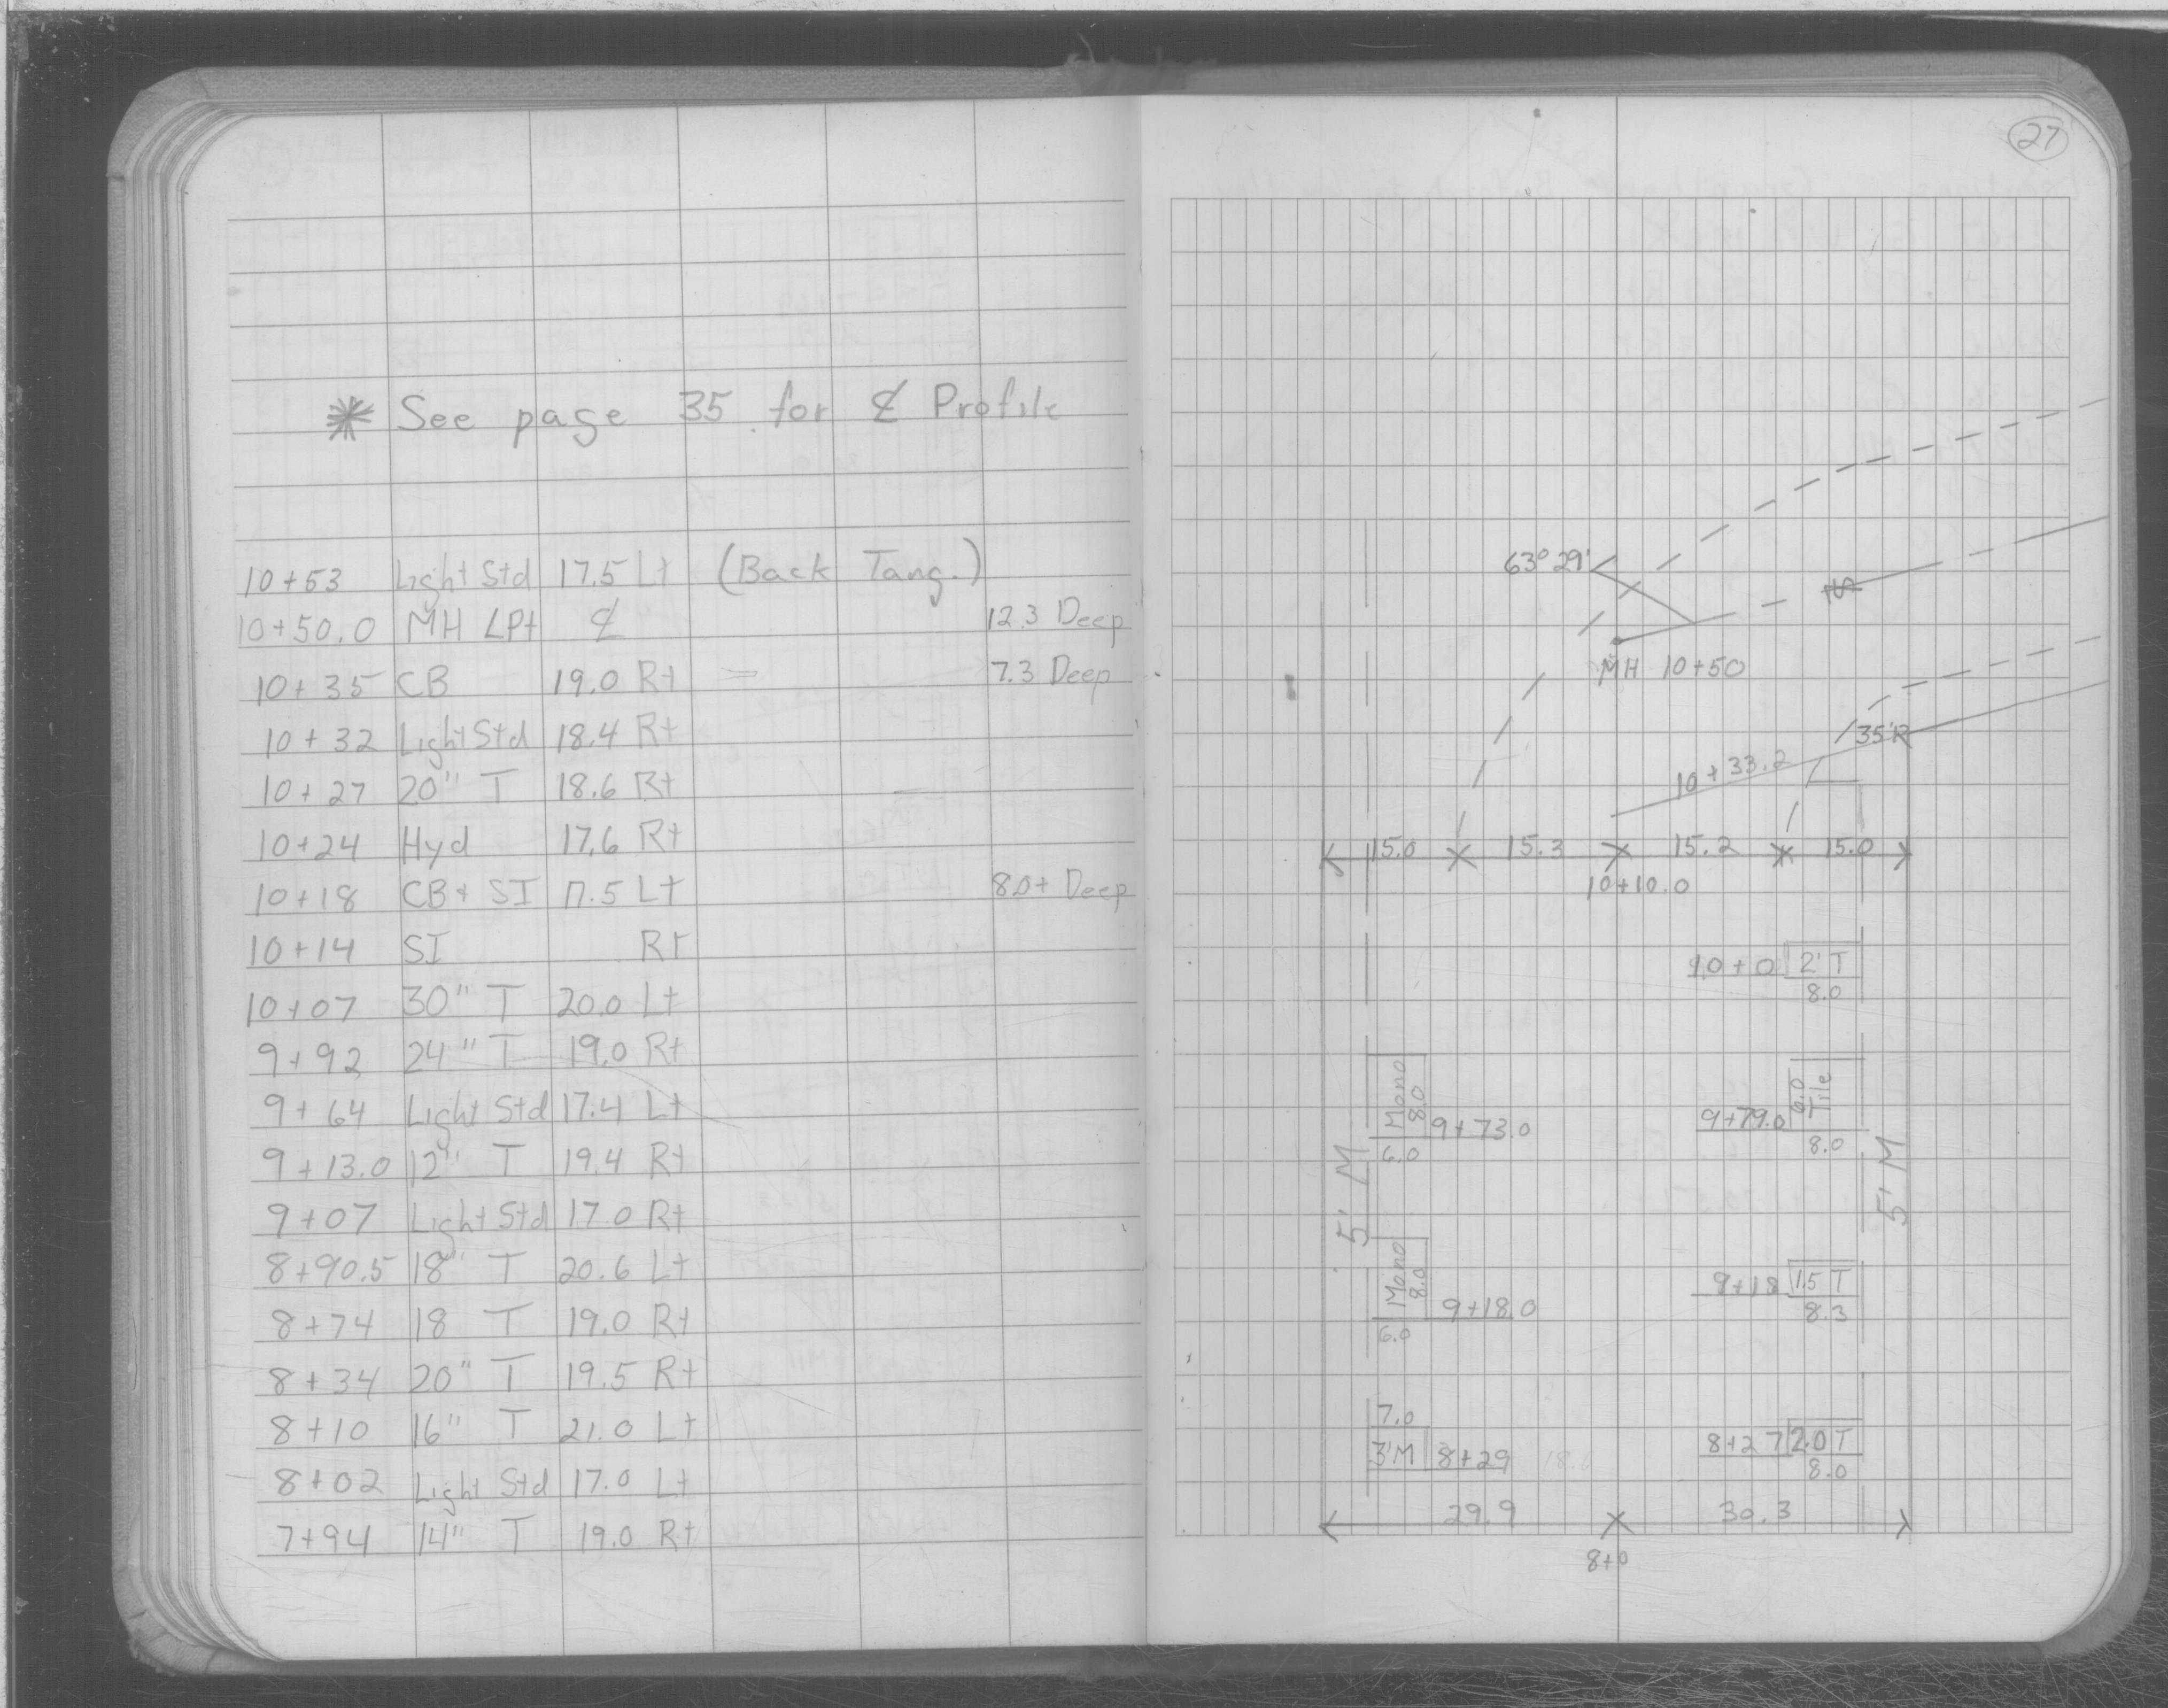 * See page 35 for ℄ Profile
10+53 Light Std 17.5 Lt (Back Tang.)
10+50.0 MH ∠Pt ℄ 12.3 Deep
10+35 CB 19.0 Rt 7.3 Deep
10+32 Light Std 18.4 Rt
10+27 20" T 18.6 Rt
10+24 Hyd 17.6 Rt
10+18 CB+SI 17.5 Lt 8.0+ Deep
10+14 SI Rt
10+07 30" T 20.0 Lt
9+92 24" T 19.0 Rt
9+64 Light Std 17.4 Lt
9+13.0 12" T 19.4 Rt
9+07 Light Std 17.0 Rt
8+90.5 18" T 20.6 Lt
8+74 18 T 19.0 Rt
8+34 20" T 19.5 Rt
8+10 16" T 21.0 Lt
8+02 Light Std 17.0 Lt
7+94 14" T 19.0 Rt
27
63°29'
MH 10+50
35'R
10+33.2
15.0 15.3 15.2 15.0
10+10.0
10+0 2' T
8.0
Mono 8.0
6.0
9+73.0
9+79.0
6.0 Tile
8.0
5' M
5' M
Mono 8.0
6.0
9+18.0
9+18 1.5 T
8.3
7.0
3'M 8+29
8+27 2.0 T
8.0
29.9 30.3
8+0